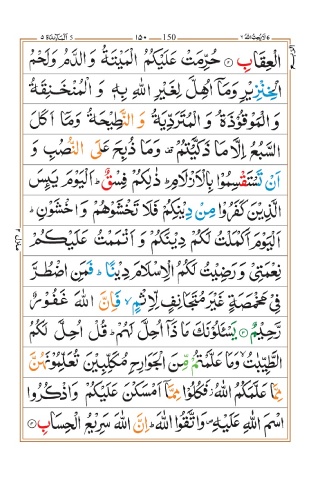 المآئدة ٥ ١٥٠ 150 لا يحب الله ٦
الْعِقَابِ ۞ حُرِّمَتْ عَلَيْكُمُ الْمَيْتَةُ وَ الدَّمُ وَلَحْمُ
الْخِنْزِيْرِ وَمَاۤ اُهِلَّ لِغَيْرِ اللّٰهِ بِهٖ وَ الْمُنْخَنِقَةُ
وَ الْمَوْقُوْذَةُ وَ الْمُتَرَدِّيَةُ وَ النَّطِيْحَةُ وَ مَاۤ اَكَلَ
السَّبُعُ اِلَّا مَا ذَكَّيْتُمْ وَمَا ذُبِحَ عَلَى النُّصُبِ وَ
اَنْ تَسْتَقْسِمُوْا بِالْاَزْلَامِ ؕ ذٰلِكُمْ فِسْقٌ ؕ اَلْيَوْمَ يَىِٕسَ
الَّذِيْنَ كَفَرُوْا مِنْ دِيْنِكُمْ فَلَا تَخْشَوْهُمْ وَ اخْشَوْنِ ؕ
اَلْيَوْمَ اَكْمَلْتُ لَكُمْ دِيْنَكُمْ وَ اَتْمَمْتُ عَلَيْكُمْ
نِعْمَتِيْ وَ رَضِيْتُ لَكُمُ الْاِسْلَامَ دِيْنًا ؕ فَمَنِ اضْطُرَّ
فِيْ مَخْمَصَةٍ غَيْرَ مُتَجَانِفٍ لِّاِثْمٍ ۙ فَاِنَّ اللّٰهَ غَفُوْرٌ
رَّحِيْمٌ ۞ يَسْـَٔلُوْنَكَ مَا ذَاۤ اُحِلَّ لَهُمْ ؕ قُلْ اُحِلَّ لَكُمُ
الطَّيِّبٰتُ ۙ وَمَا عَلَّمْتُمْ مِّنَ الْجَوَارِحِ مُكَلِّبِيْنَ تُعَلِّمُوْنَهُنَّ
مِمَّا عَلَّمَكُمُ اللّٰهُ ؗ فَكُلُوْا مِمَّاۤ اَمْسَكْنَ عَلَيْكُمْ وَ اذْكُرُوا
اسْمَ اللّٰهِ عَلَيْهِ ۪ وَ اتَّقُوا اللّٰهَ ؕ اِنَّ اللّٰهَ سَرِيْعُ الْحِسَابِ ۞